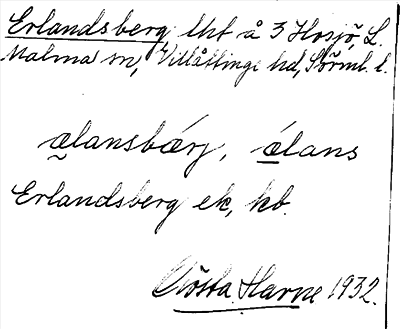 Erlandsberg, lht å 3 Hosjö, L.
Malma sn, Villåttinge hd, Sörml. l.
ælansbærj, ælans
Erlandsberg ek, kb.
Gösta Harne 1932.